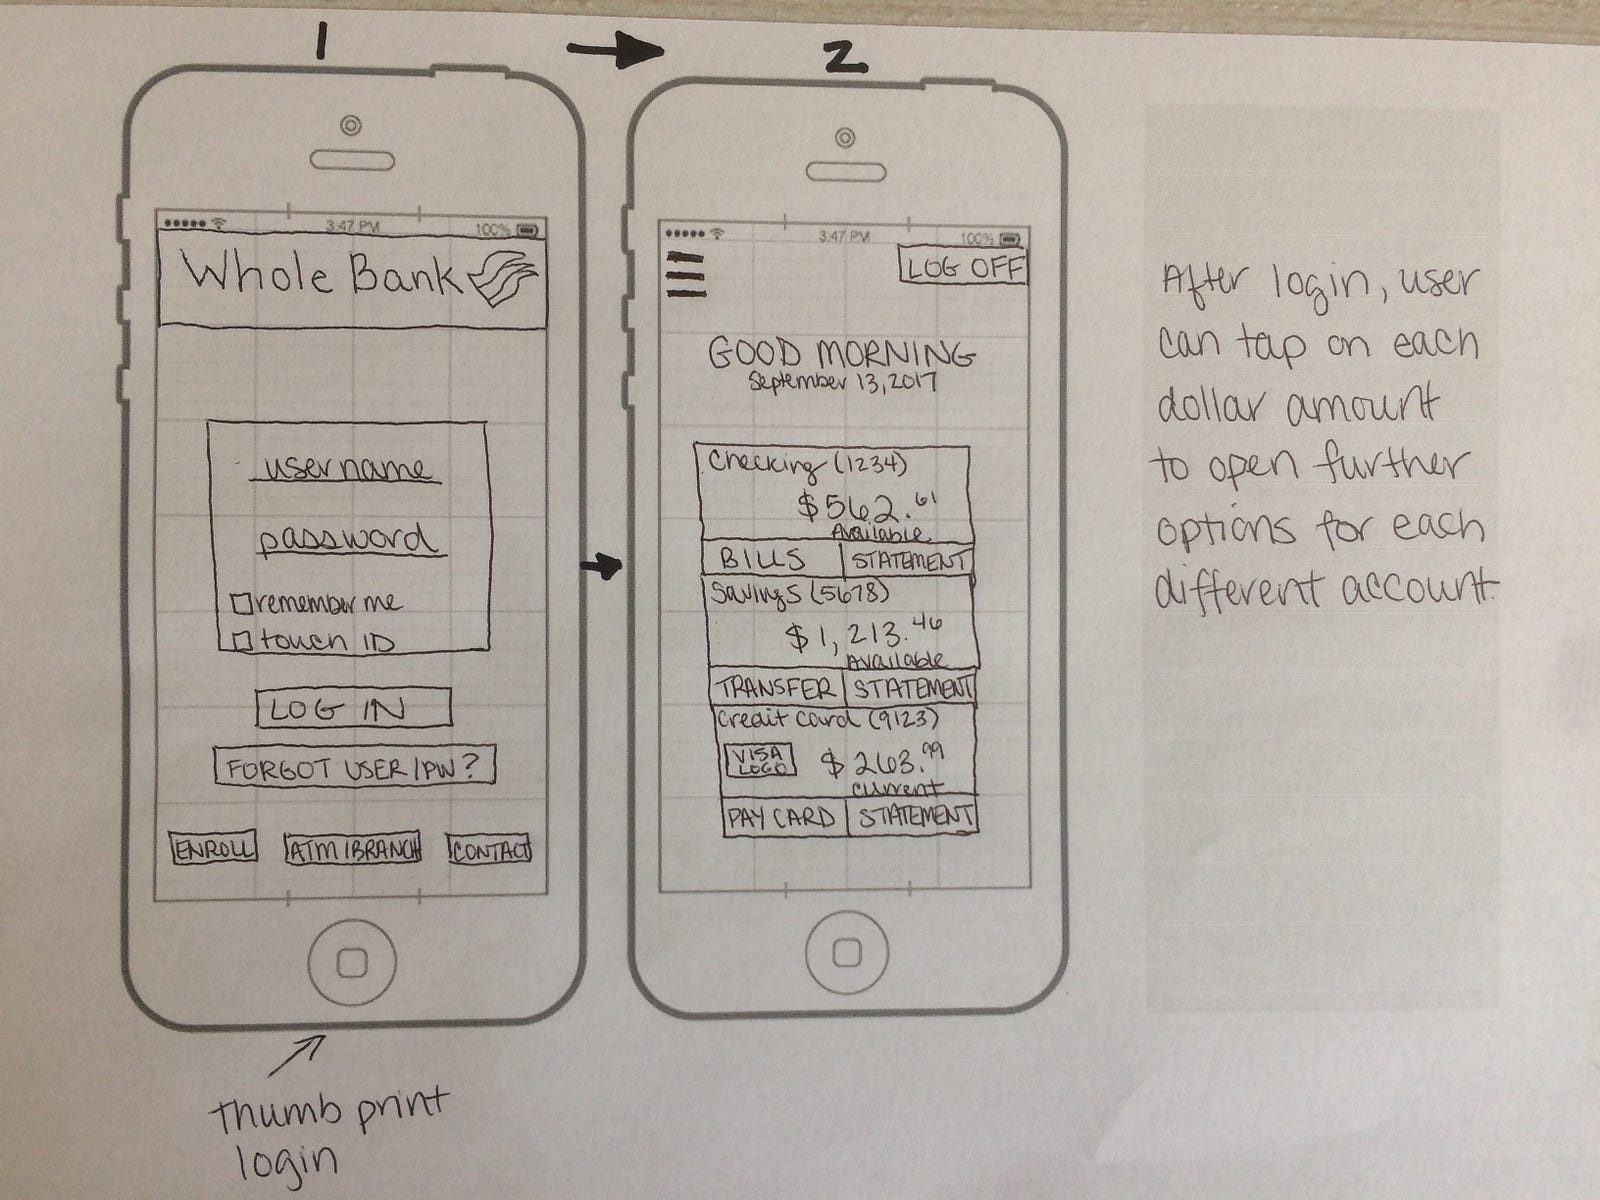 1
2
3:47 PM
100%
Whole Bank
username
password
remember me
touch ID
LOG IN
FORGOT USER/PW?
ENROLL
ATM/BRANCH
CONTACT
thumb print
login
3:47 PM
100%
LOG OFF
GOOD MORNING
September 13, 2017
Checking (1234)
$562.61
Available
BILLS
STATEMENT
Savings (5678)
$1,213.46
Available
TRANSFER
STATEMENT
Credit Card (9123)
VISA
LOGO
$263.99
current
PAY CARD
STATEMENT
After login, user
can tap on each
dollar amount
to open further
options for each
different account.